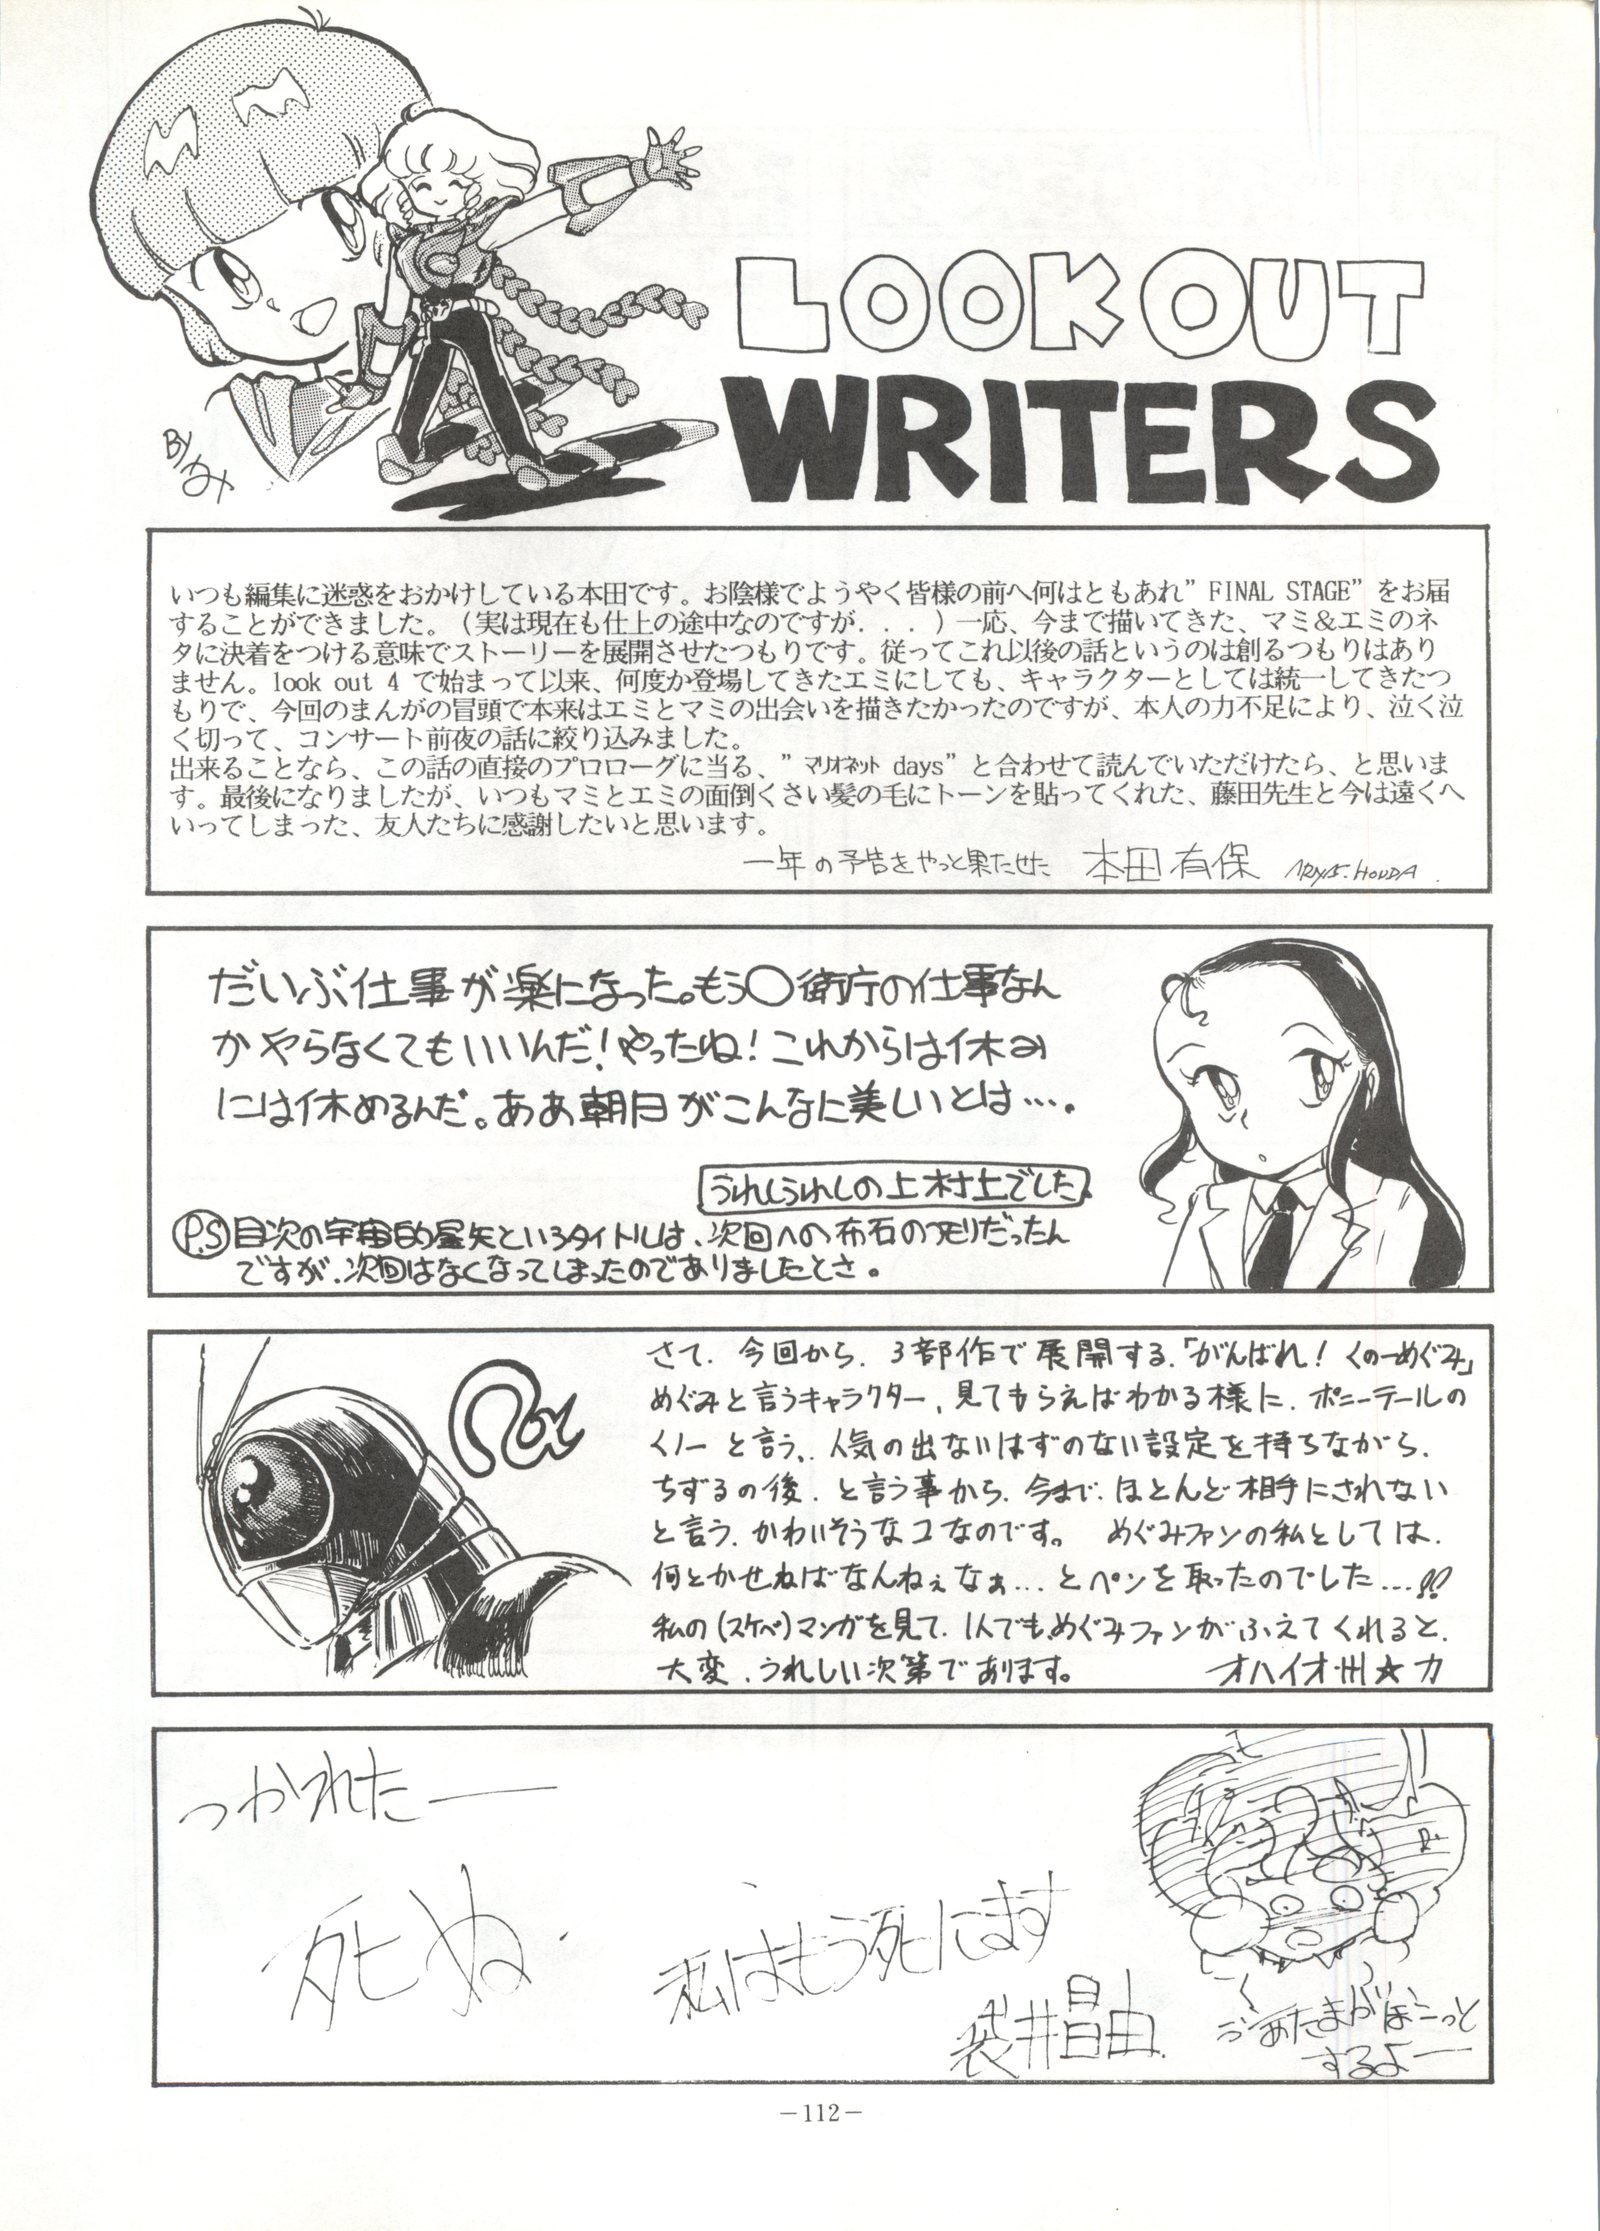 LOOK OUT
WRITERS
By
いつも編集に迷惑をおかけしている本田です。お陰様でようやく皆様の前へ何はともあれ”FINAL STAGE”をお届
することができました。(実は現在も仕上の途中なのですが...)一応、今まで描いてきた、マミ&エミのネ
タに決着をつける意味でストーリーを展開させたつもりです。従ってこれ以後の話というのは創るつもりはあり
ません。look out 4 で始まって以来、何度か登場してきたエミにしても、キャラクターとしては統一してきたつ
もりで、今回のまんがの冒頭で本来はエミとマミの出会いを描きたかったのですが、本人の力不足により、泣く泣
く切って、コンサート前夜の話に絞り込みました。
出来ることなら、この話の直接のプロローグに当る、”マリオネット days”と合わせて読んでいただけたら、と思いま
す。最後になりましたが、いつもマミとエミの面倒くさい髪の毛にトーンを貼ってくれた、藤田先生と今は遠くへ
いってしまった、友人たちに感謝したいと思います。
一年の予告をやっと果たせた 本田有保
だいぶ仕事が楽になった。もう〇衛庁の仕事なん
かやらなくてもいいんだ!やったね!これからは休み
には休めるんだ。ああ朝日がこんなに美しいとは…。
うれしうれしの上村上でした
P.S 目次の宇宙的星矢というタイトルは、次回への布石のつもりだったん
ですが、次回はなくなってしまったのでありましたとさ。
さて、今回から、3部作で展開する、「がんばれ!くのーめぐみ」
めぐみと言うキャラクター、見てもらえばわかる様に、ポニーテールの
くノ一と言う、人気の出ないはずのない設定を持ちながら、
ちずるの後、と言う事から、今まで、ほとんど相手にされない
と言う、かわいそうなコなのです。 めぐみファンの私としては、
何とかせねばなんねぇなぁ…とペンを取ったのでした…!!
私の(スケベ)マンガを見て、1人でも、めぐみファンがふえてくれると、
大変、うれしい次第であります。 オハイオ州☆力
つかれたー
死ぬ.
私はもう死にます
袋井昌由
あたまがぼこっと
するよー
－112－